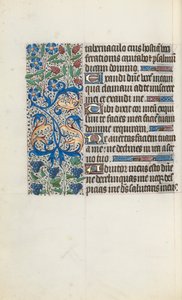 tabernaculo eius hostiam voci
ferationis cantabo et psalmum
dicam domino.
Exaudi dñe vocem meam
qua clamaui ad te miserere
mei et exaudi me.
Tibi dixit cor meum exquisi
uit te facies mea faciem tuam
domine requiram.
Ne auertas faciem tuam
a me ne declines in ira a ser
uo tuo.
Adiutor meus esto dñe
ne derelinquas me neqz des
picias me ds salutaris meus